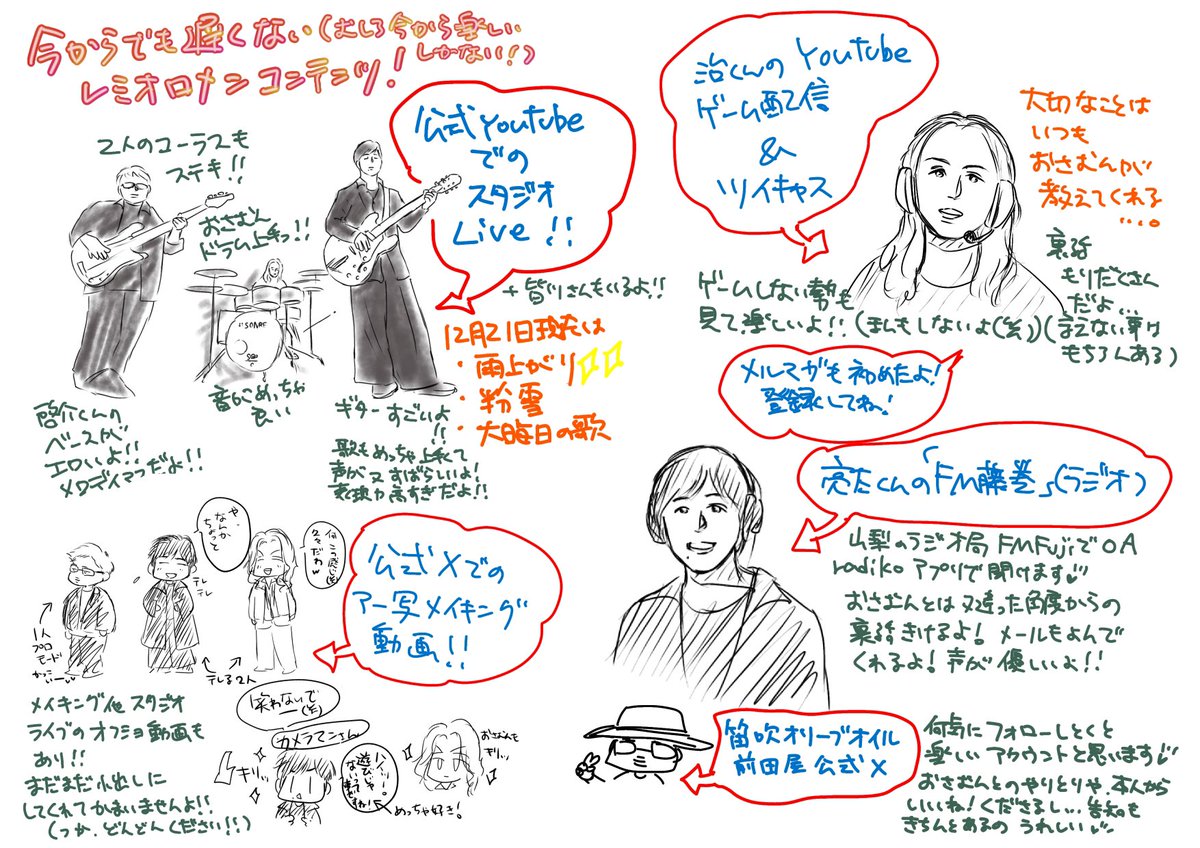 今からでも遅くない(むしろ今から楽しい
しかない!)
レミオロメンコンテンツ!
2人のコーラスも
ステキ!!
おさむん
ドラム上手っ!!
SONOR
音がめっちゃ
良い
啓介くんの
ベースが
エロいよ!!
メロディアスだよ!!
ギターすごいよ
!!
歌もめっちゃ上手くて
声がマヌすばらしいよ!
表現力高すぎだよ!!
公式Youtube
での
スタジオ
Live!!
+皆川さんもいるよ!!
12月21日現在は
・雨上がり
・粉雪
・大晦日の歌
治くんのYoutube
ゲーム配信
&
ツイキャス
大切なことは
いつも
おさむんが
教えてくれる
....。
裏話
もりだくさん
だよ...
ゲームしない勢も
見て楽しいよ!!(まんもしないよ(笑))(言えない事は
もちろんある)
メルマガも初めたよ!
登録してね!
亮太くんの「FM藤巻」(ラジオ)
山梨のラジオ局FMFujiでOA
radikoアプリで聞けます
おさむんとは又違った角度からの
裏話きけるよ!メールもよんで
くれるよ!声が優しいよ!!
公式Xでの
アー写メイキング
動画!!
や、
なんか
ちょっと
何この感じ
久々だわ
テレ
テレ
1人
プロ
モード
かっこ
いーい
テレる2人
メイキング他スタジオ
ライブのオフショ動画も
あり!!
まだまだ小出しに
してくれてかまいませんよ!!
(つか、どんどんください!!)
笑わないで
ー(笑)
カメラマンさん
キリッ
おさむんも
キリッ
めっちゃ好き。
笛吹オリーブオイル
前田屋公式X
何気にフォローしとくと
楽しいアカウントと思います
おさむんとのやりとりや、本人から
いいね!くださるし...告知も
きちんとあるの うれしい